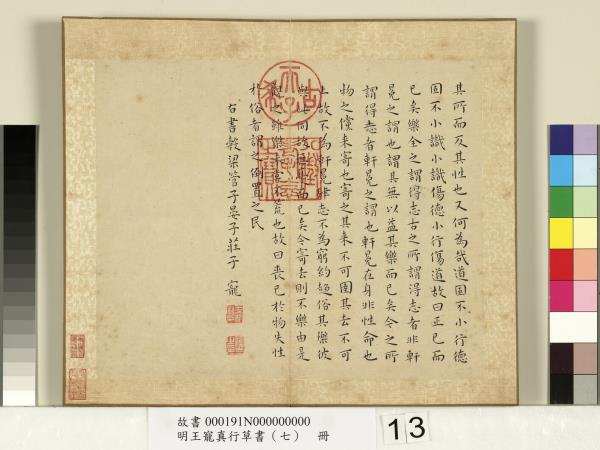 其所而反其性也又何為哉道固不小行德
固不小識小識傷德小行傷道故曰正已而
已矣樂全之謂得志古之所謂得志者非軒
冕之謂也謂其無以益其樂而已矣今之所
謂得志者軒冕之謂也軒冕在身非性命也
物之儻来寄也寄之其来不可圉其去不可
止故不為軒冕肆志不為窮約趨俗其樂彼
與此同故無憂而已矣今寄去則不樂由是
觀之雖樂未嘗不荒也故曰喪已於物失性
於俗者謂之倒置之民
右書穀梁管子晏子莊子 寵
故書 000191N000000000
明王寵真行草書（七） 冊
13